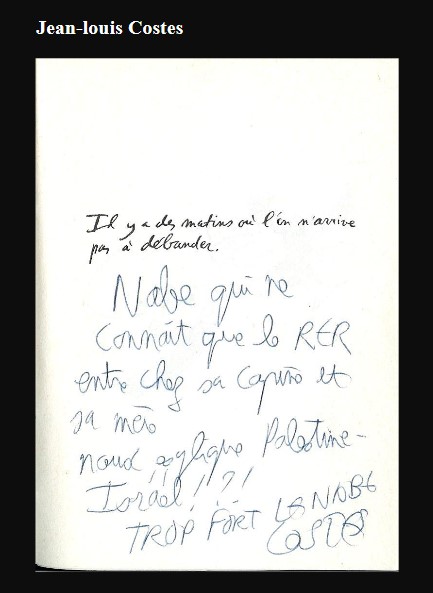 Jean-louis Costes
Il y a des matins où l'on n'arrive
pas à débander.
Nabe qui ne
connaît que le RER
entre chez sa copine et
sa mère
nous explique Palestine-
Israël !?!
TROP FORT LE NABE
COSTES